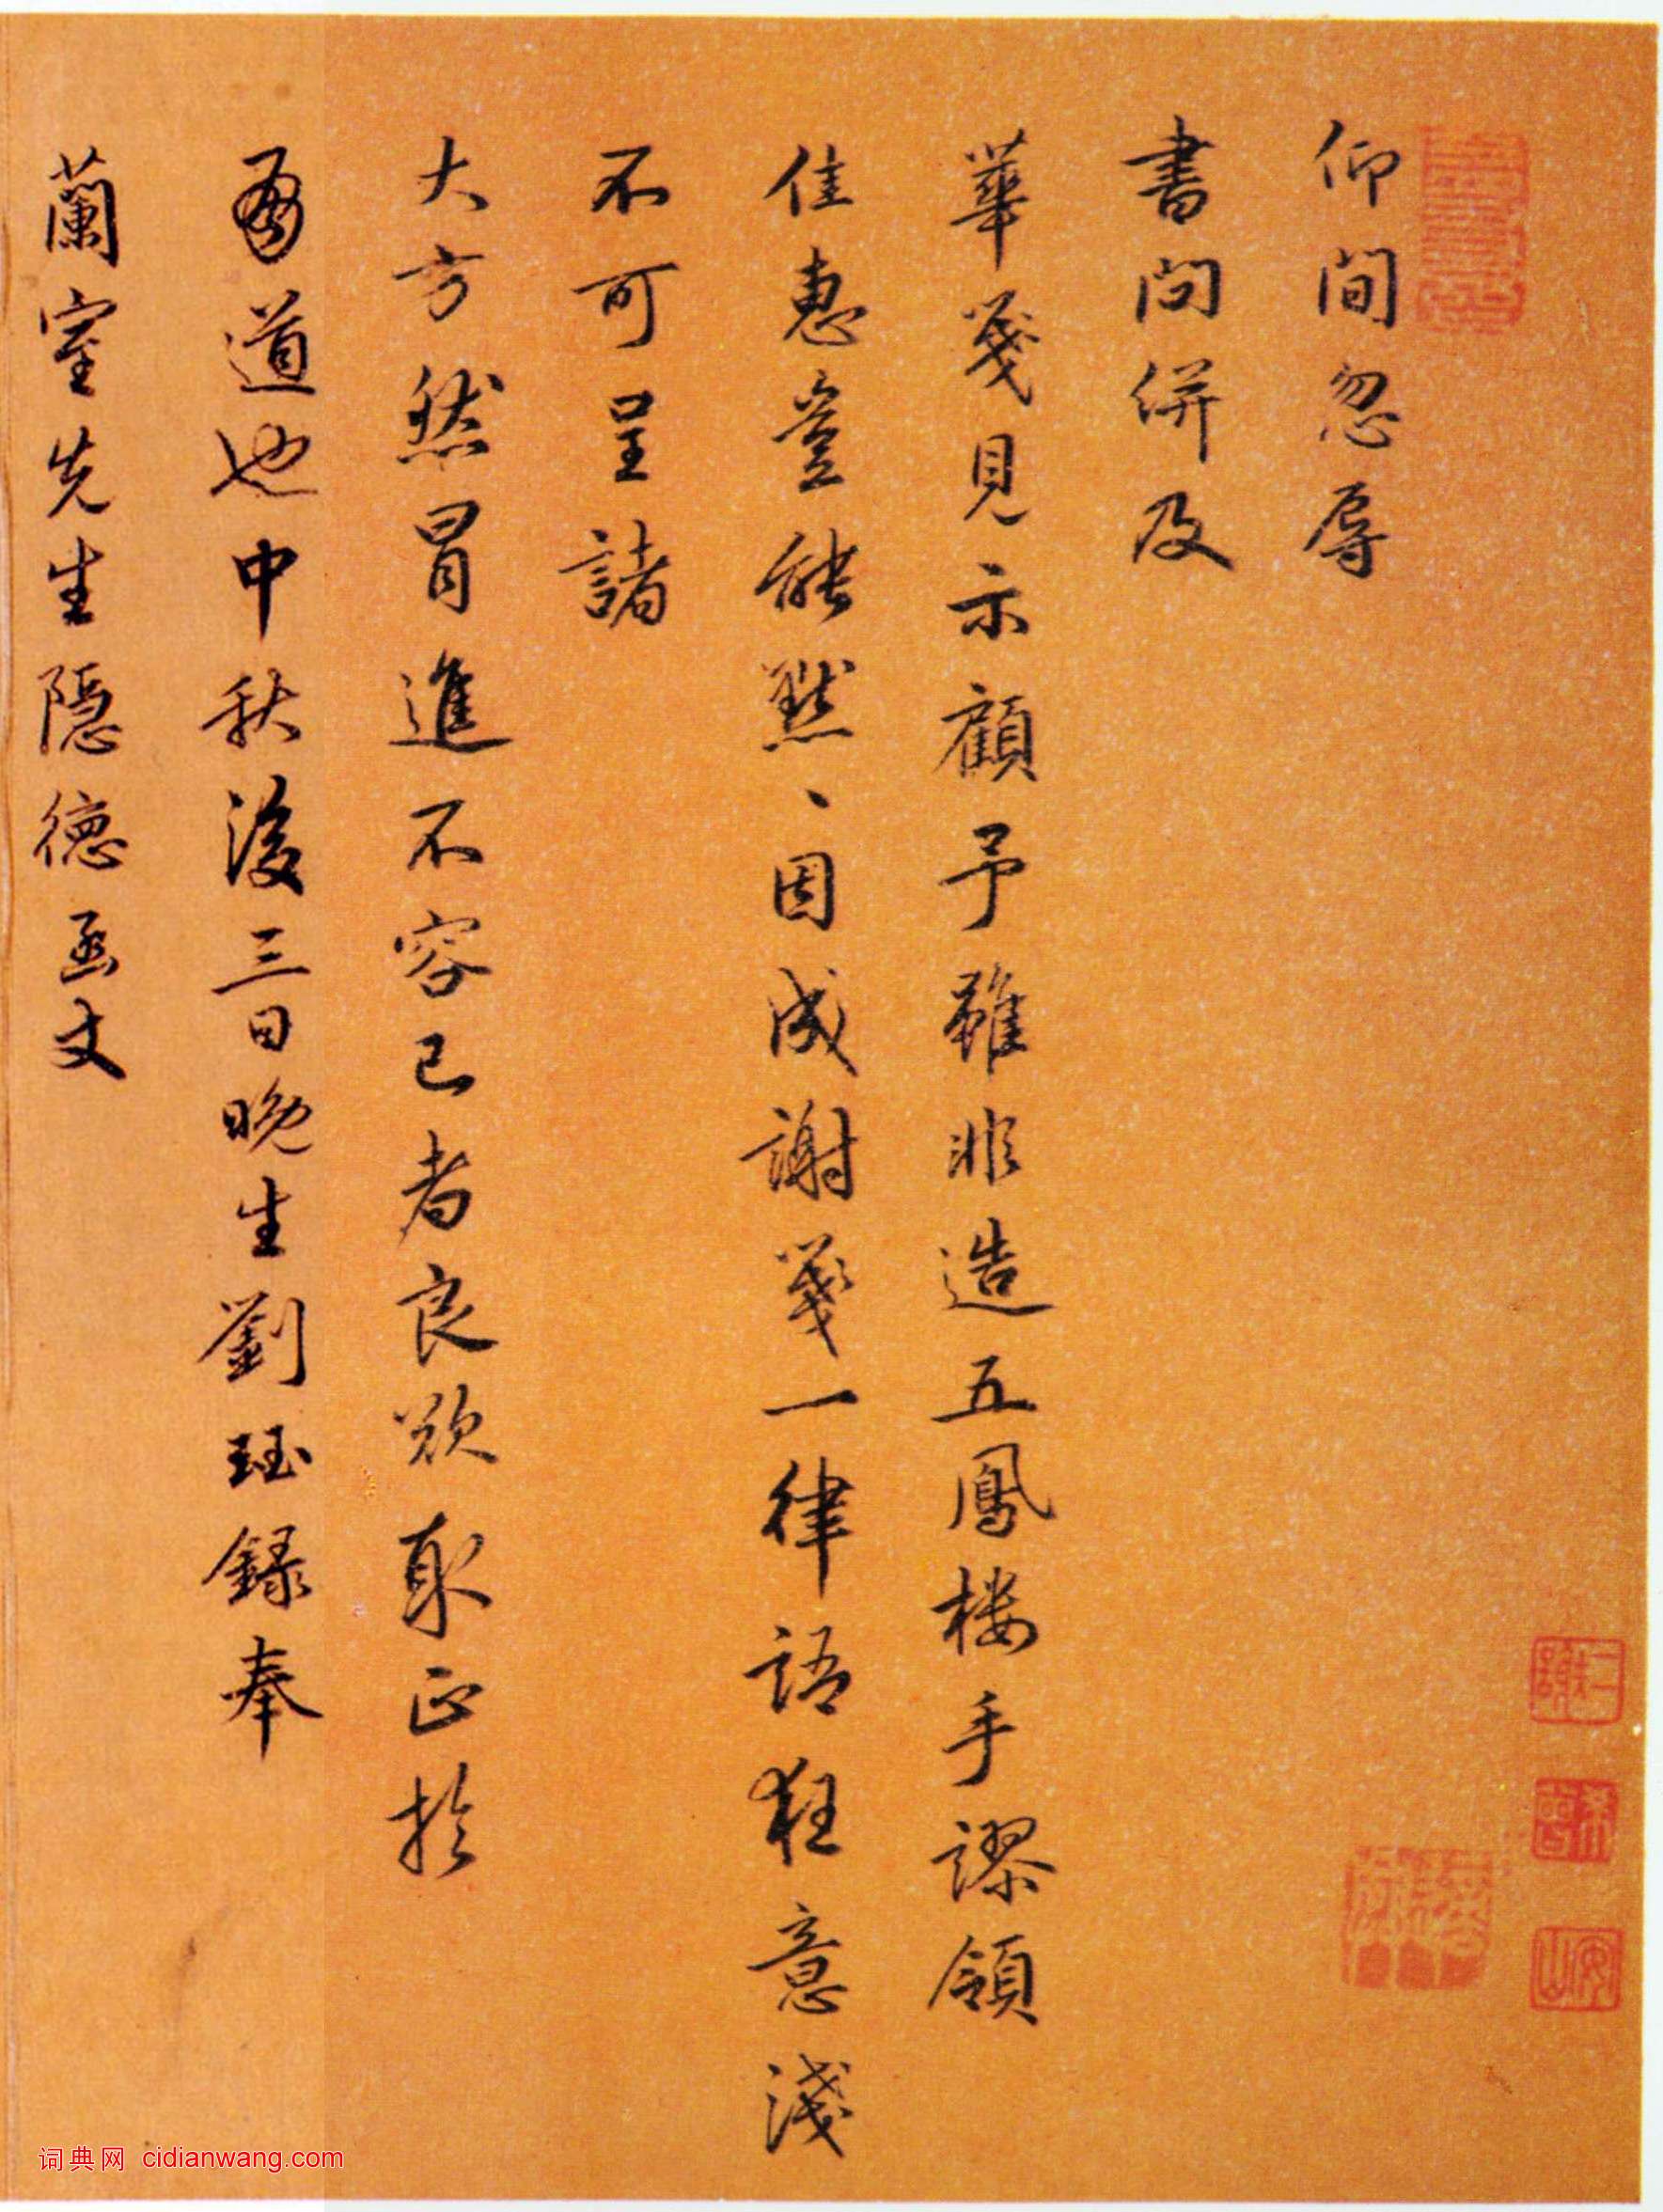 仰間忽辱
書問併及
華箋見示顧予雖非造五鳳樓手謬領
佳惠豈能默、因成謝箋一律語狂意淺
不可呈諸
大方然冒進不容已者良欲取正於
有道也中秋後三日晚生劉珏録奉
蘭室先生隱德函丈
安
词典网 cidianwang.com